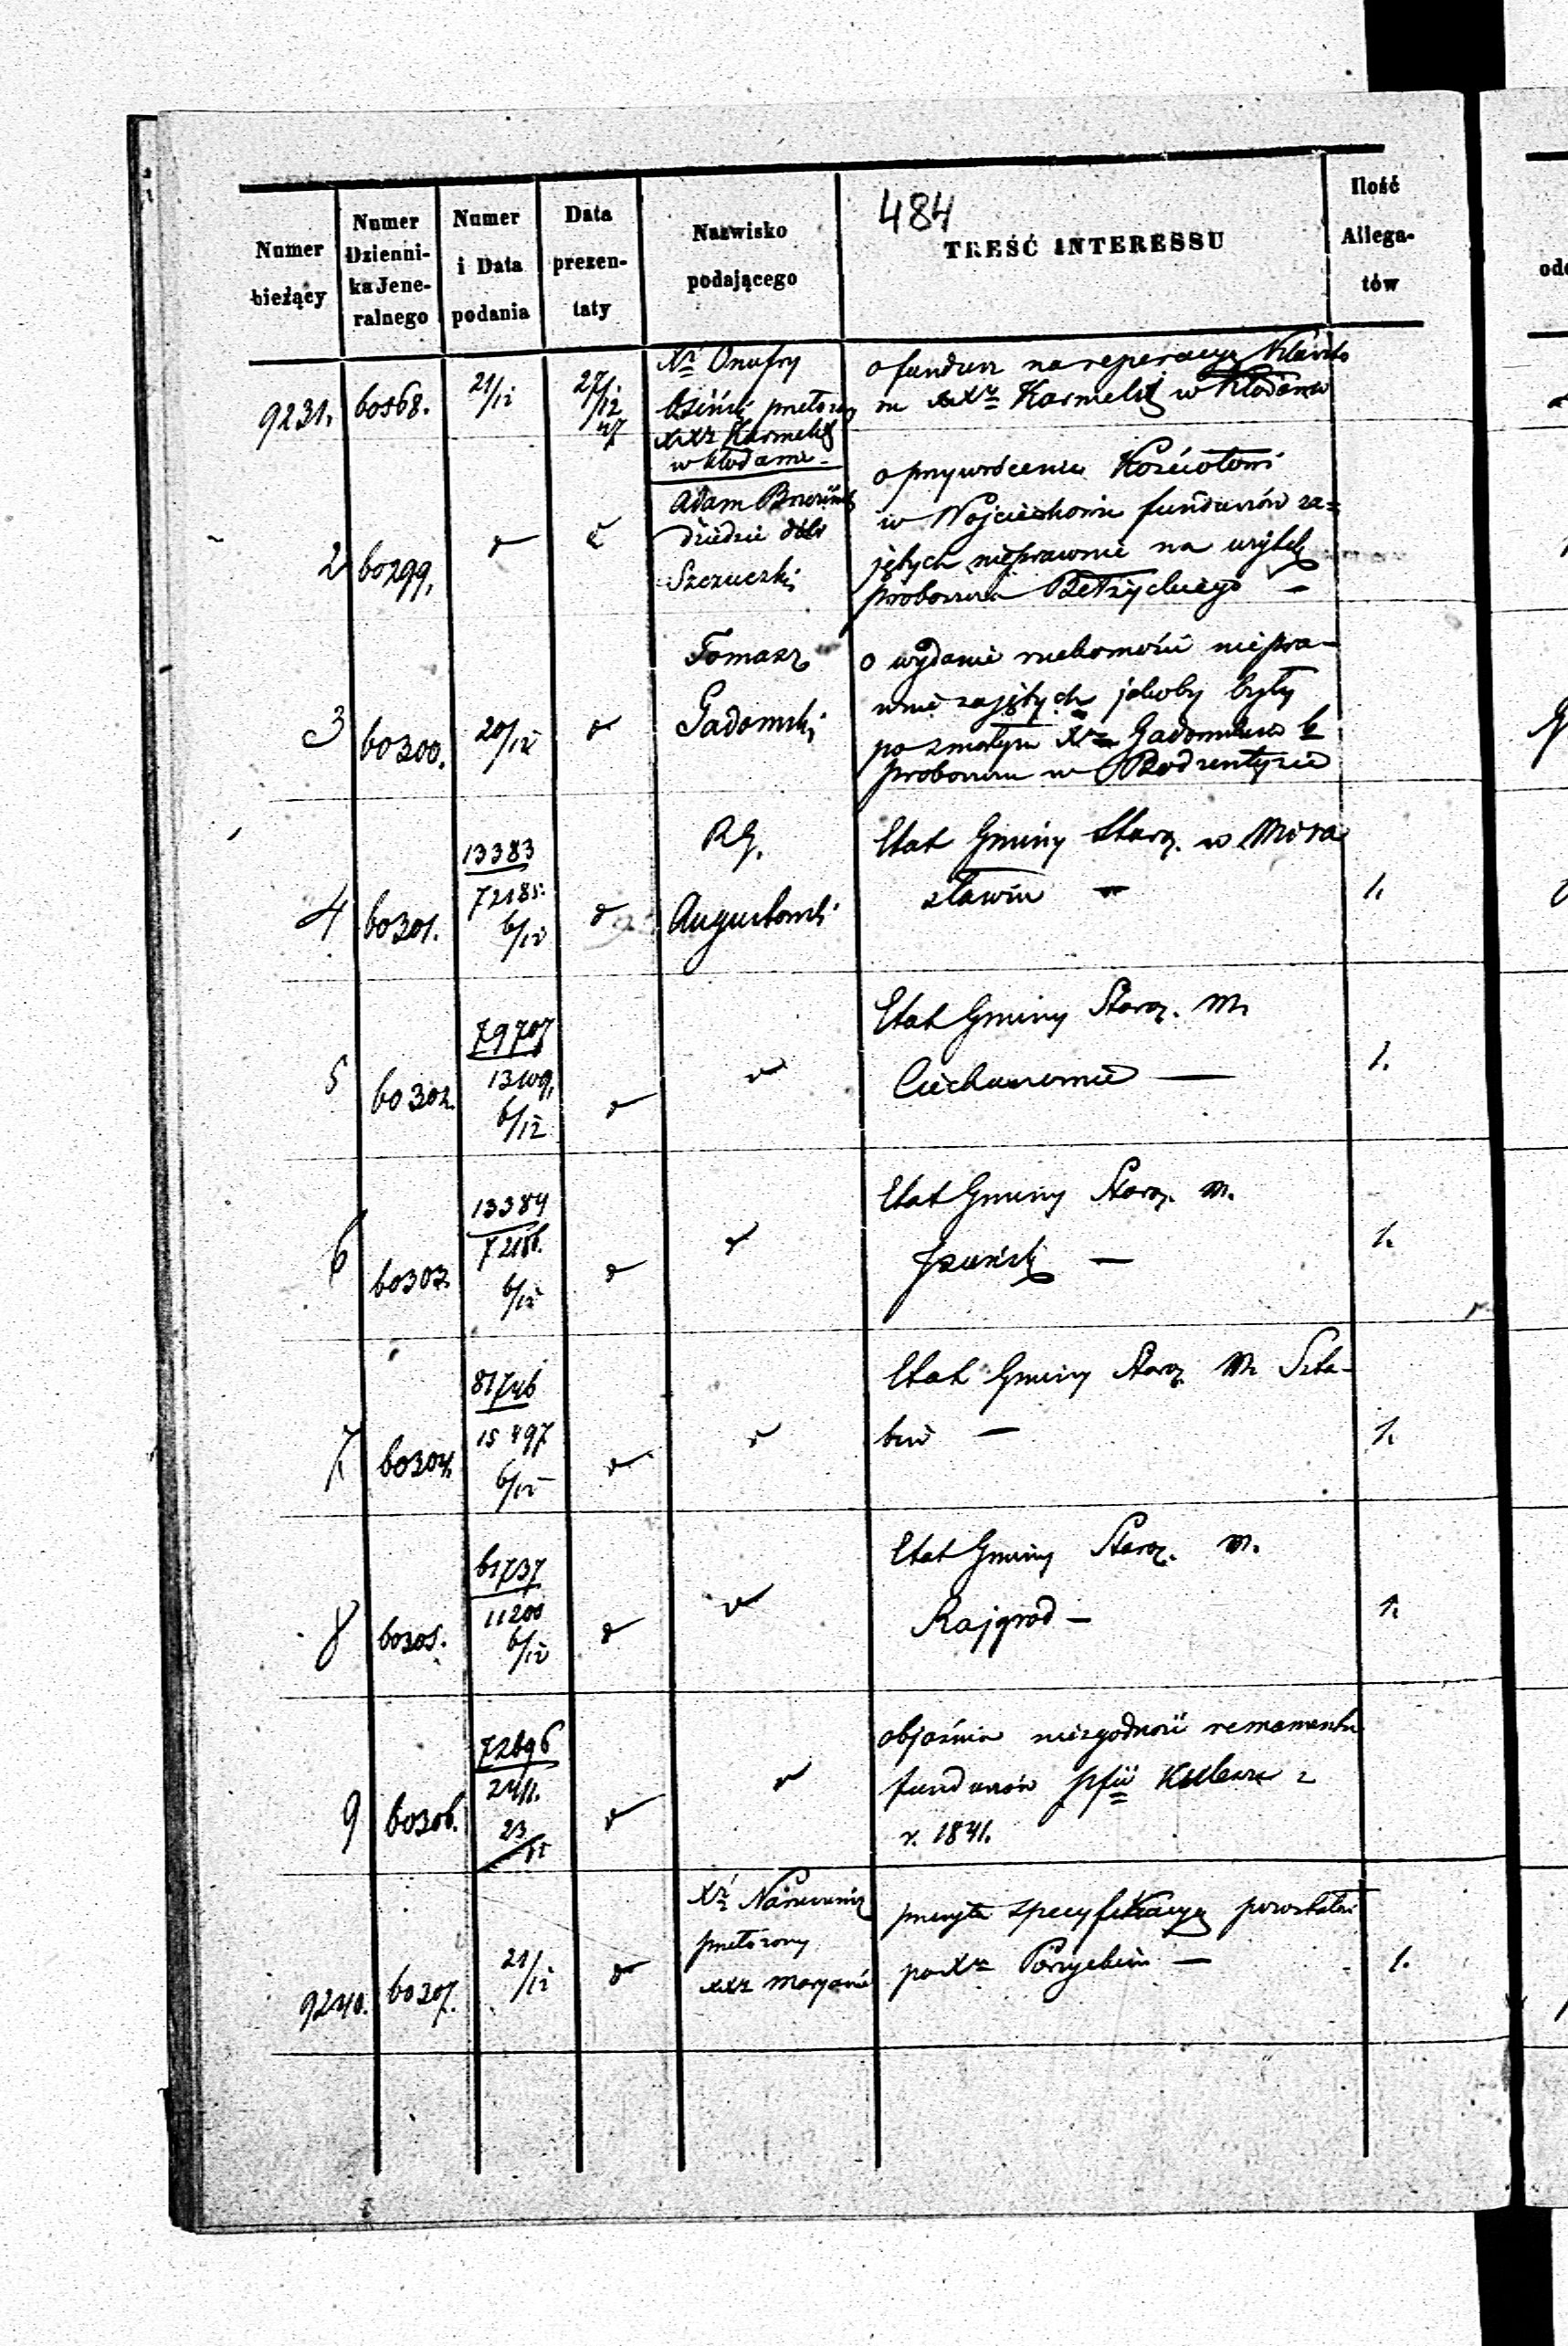 484
Numer bieżący
Numer Dzienni-ka Jene-ralnego
Numer i Data podania
Data prezen-taty
Nazwisko podającego
TREŚĆ INTERESSU
Ilość Allega-tów
9231. 60568. 21/12 27/12 47
Xs Onufry
przełożony
XXz Karmelit
w Kłodawie
o fundusz na reperacyę Klaszto
ru XXz Karmelit w Kłodawie
2 60299.
Adam
dziedzic dóbr
Szczuczki
o przywrócenie Kościołowi
w Wojciechowie funduszów za=
jętych nieprawnie na użytek
proboszcza Bełżyckiego —
3 60300. 20/12
Tomasz
Gadomski
o wydanie ruchomości niepra-
wnie zajętych jakoby były
po zmarłym Xz Gadomskim b
proboszczu w Bodzentynie
4 60301. 13383
72185.
6/12
RG.
Augustowski
Etat Gminy Staroz. w
sławiu — 1.
5 60302. 79707
6/12
Etat Gminy Staroz. m.
Ciechanowie — 1.
6 60303. 13384
72186.
6/12
Etat Gminy Staroz. m.
— 1.
7. 60304. 81746
15497
6/12
Etat Gminy Staroz. m. Szta-
bin — 1.
8 60305. 61737
11200
6/12
Etat Gminy Staroz. m.
Rajgrod — 1.
9 60306. 72696
2411.
23/11
objaśnia niezgodność remanentu
funduszów z
r. 1841.
9240. 60307. 21/12
Xz
przełożony
XXz Maryanów
przesyła specyfikacyę pozostałości
po Xz — 1.